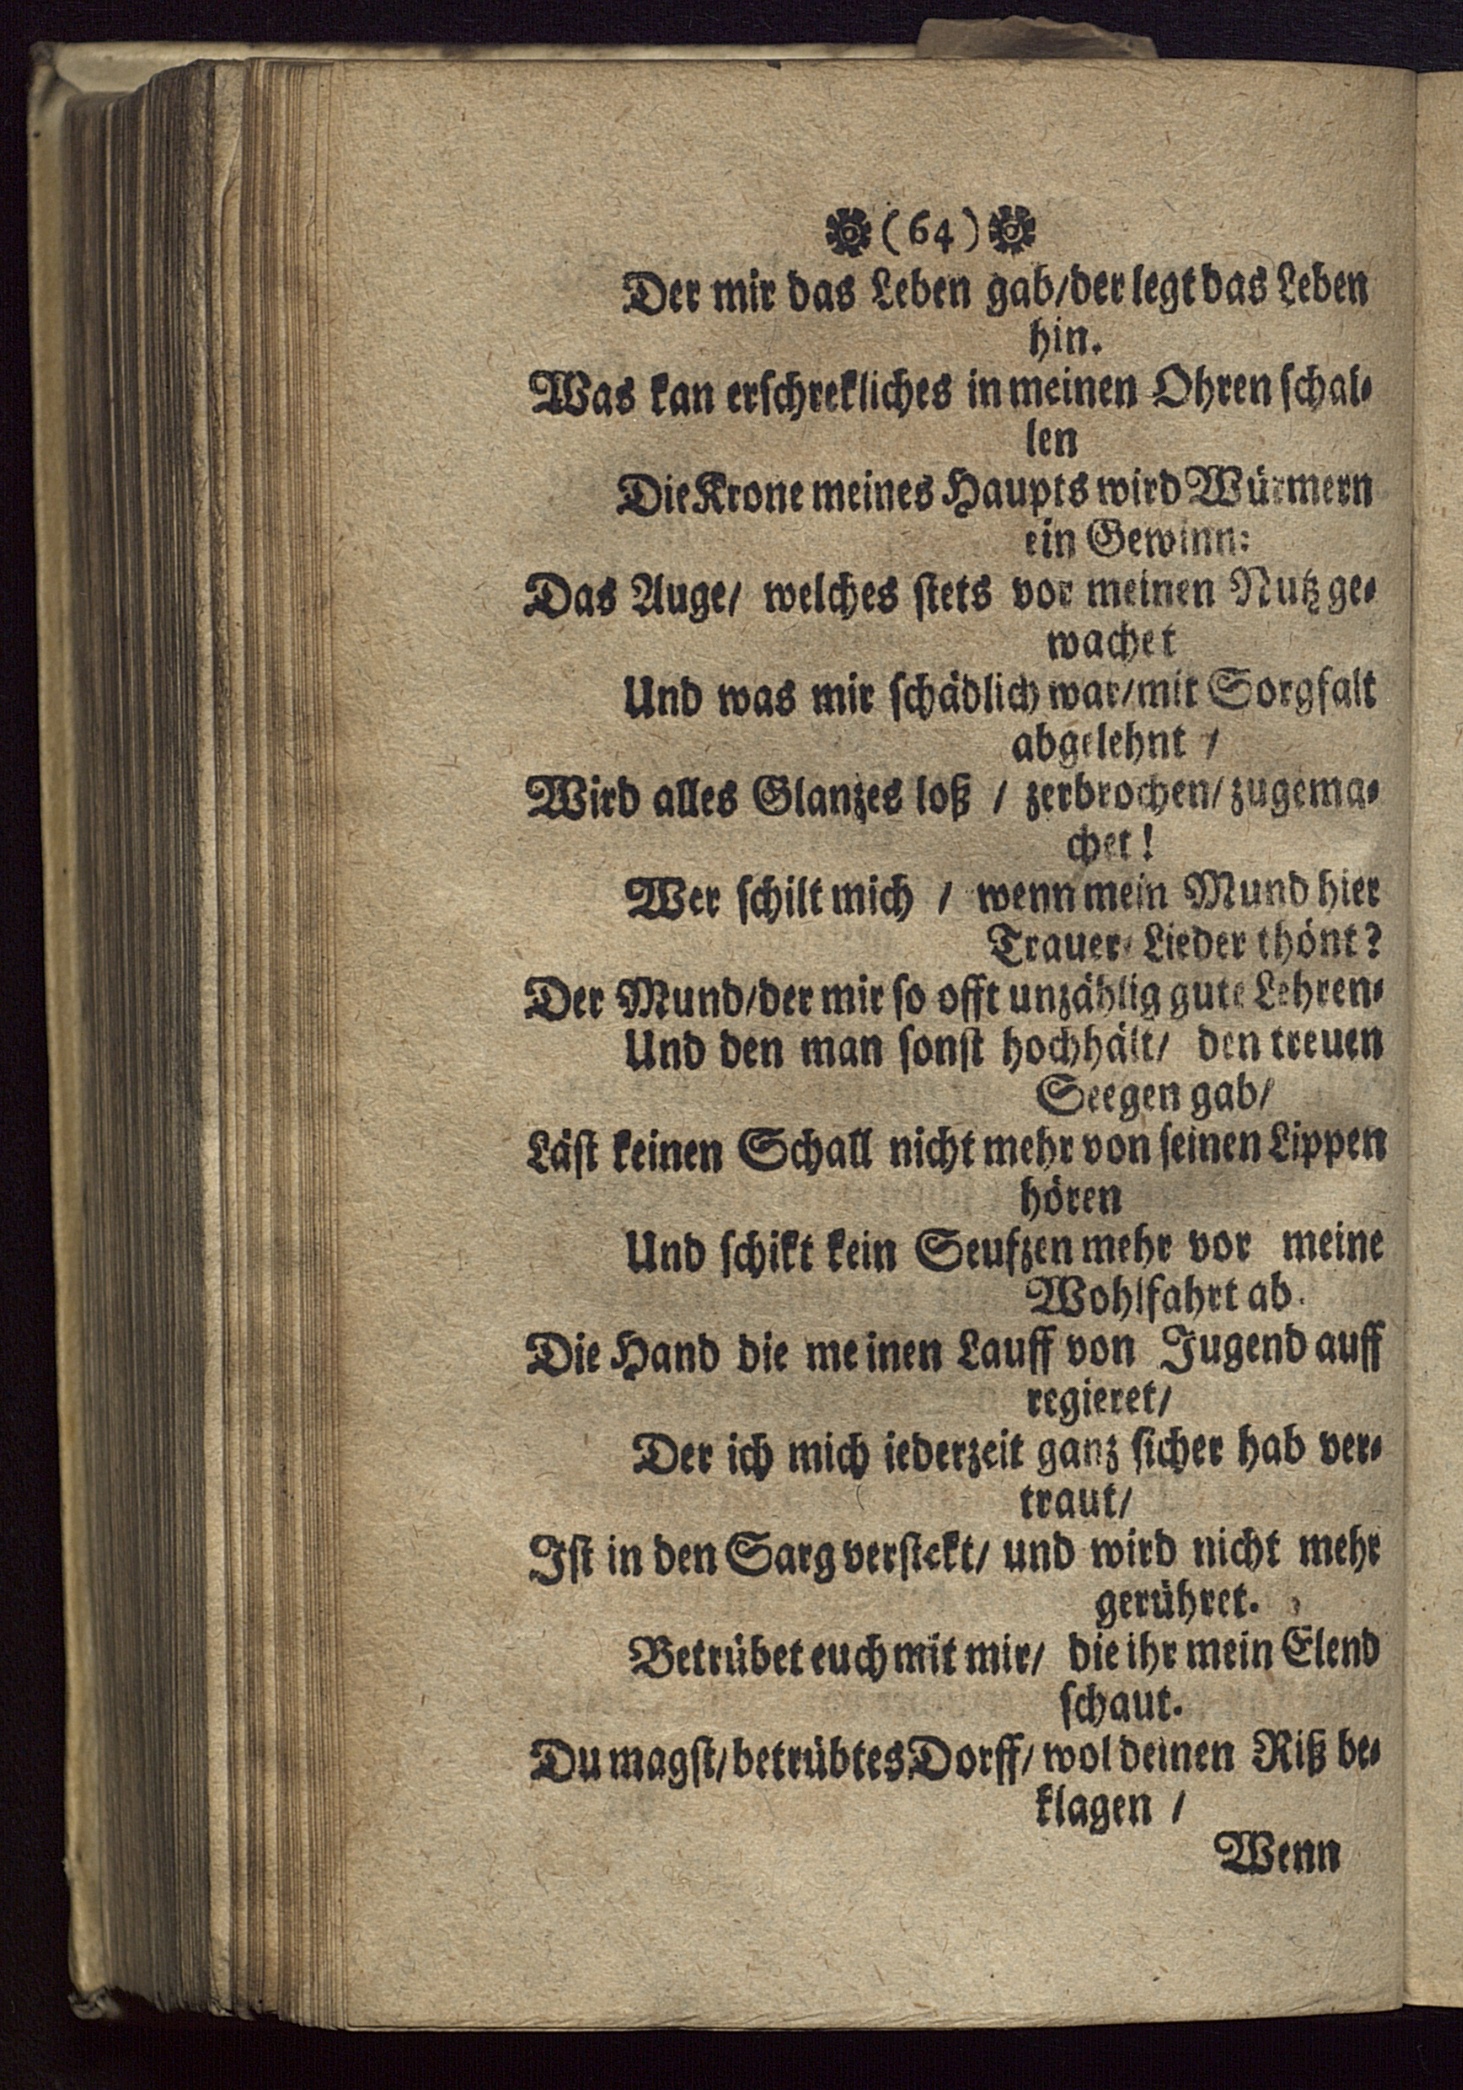 (64)
Der mir das Leben gab/der legt das Leben
hin.
Was kan erschrekliches in meinen Ohren schal-
len
Die Krone meines Haupts wird Würmern
ein Gewinn:
Das Auge/ welches stets vor meinen Nutz ge-
wachet
Und was mir schädlich war/mit Sorgfalt
abgelehnt /
Wird alles Glanzes loß / zerbrochen/zugema-
chet!
Wer schilt mich / wenn mein Mund hier
Trauer-Lieder thönt?
Der Mund/der mir so offt unzählig gute Lehren-
Und den man sonst hochhält/ den treuen
Seegen gab/
Läst keinen Schall nicht mehr von seinen Lippen
hören
Und schikt kein Seufzen mehr vor meine
Wohlfahrt ab.
Die Hand die meinen Lauff von Jugend auff
regieret/
Der ich mich iederzeit ganz sicher hab ver-
traut/
Ist in den Sarg verstekt/ und wird nicht mehr
gerühret.
Betrübet euch mit mir/ die ihr mein Elend
schaut.
Du magst/betrübtes Dorff/ wol deinen Riß be-
klagen /
Wenn